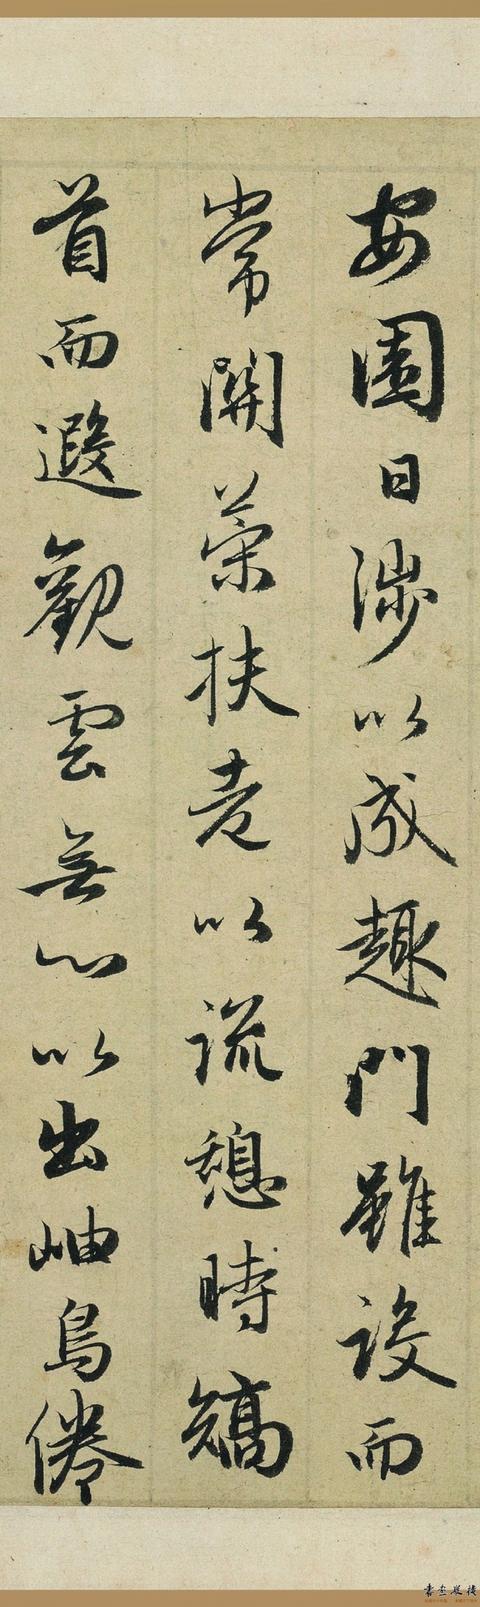 安園日涉以成趣門雖設而
常關策扶老以流憩時矯
首而遐觀雲無心以出岫鳥倦